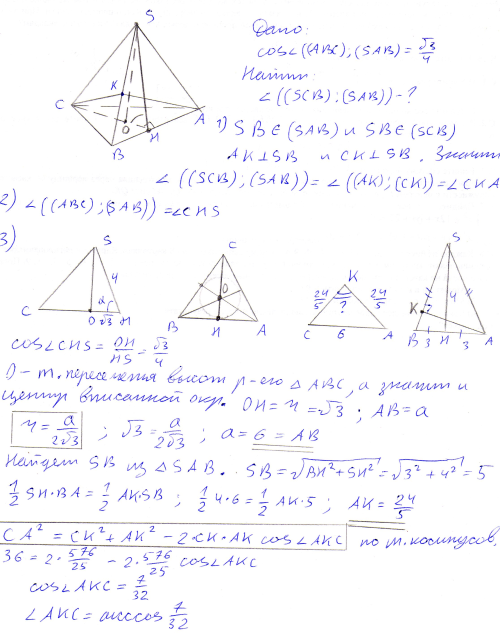 S
K
C
O
A
B
H
Дано:
cos∠((ABC);(SAB)) = √3/4
Найти:
∠((SCB);(SAB)) - ?
1) SB∈(SAB) и SB∈(SCB)
AK⊥SB и CK⊥SB. Значит
∠((SCB);(SAB)) = ∠((AK);(CK)) = ∠CKA
2) ∠((ABC);(SAB)) = ∠CHS
3)
S
4
C
O
√3
H
C
O
B
H
A
K
24/5
?
24/5
C
6
A
S
K
4
B
3
H
3
A
cos∠CHS = OH/HS = √3/4
O - т. пересечения высот р-его △ABC, а значит и
центр вписанной окр. OH = r = √3; AB = a
r = a/2√3; √3 = a/2√3; a = 6 = AB
Найдем SB из △SAB. SB = √BH²+SH² = √3²+4² = 5
1/2 SH·BA = 1/2 AK·SB; 1/2 4·6 = 1/2 AK·5; AK = 24/5
CA² = CK² + AK² - 2·CK·AK cos∠AKC по т. косинусов.
36 = 2·576/25 - 2·576/25 cos∠AKC
cos∠AKC = 7/32
∠AKC = arccos 7/32